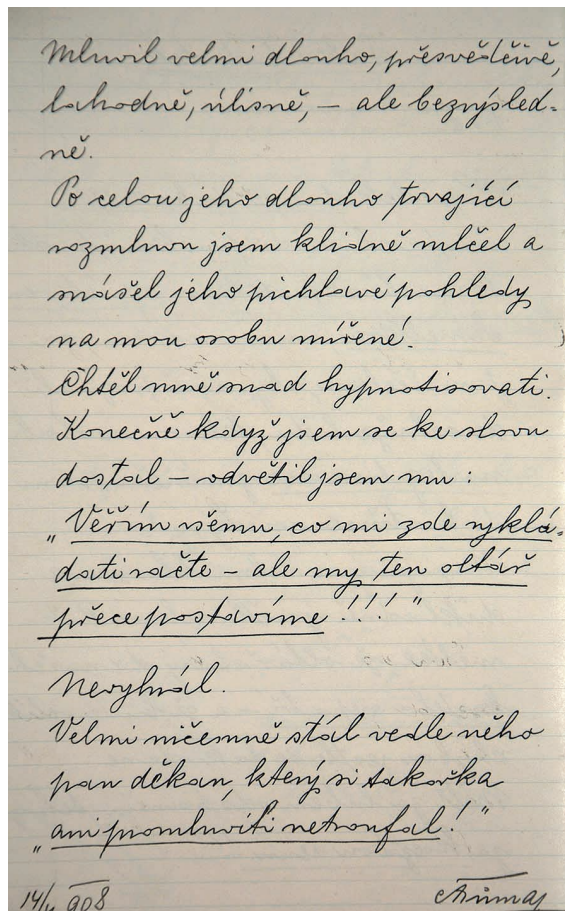 Mluvil velmi dlouho, přesvědčivě,
lahodně, úlisně, – ale bezvýsled-
ně.
Po celou jeho dlouho trvající
rozmluvu jsem klidně mlčel a
snášel jeho pichlavé pohledy
na mou osobu mířené.
Chtěl mně snad hypnotisovati.
Konečně když jsem se ke slovu
dostal – odvětil jsem mu:
„Věřím všemu, co mi zde vyklá-
dati račte – ale my ten oltář
přece postavíme!!!"
Nevyhrál.
Velmi ničemně stál vedle něho
pan děkan, který si takořka
„ani promluviti netroufal!"
908